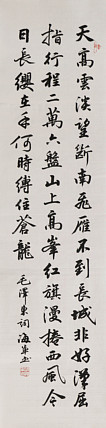 天高雲淡望斷南飛雁不到長城非好漢屈
指行程二萬六盤山上高峯紅旗漫捲西風今
日長纓在手何時縛住蒼龍
毛澤東詞